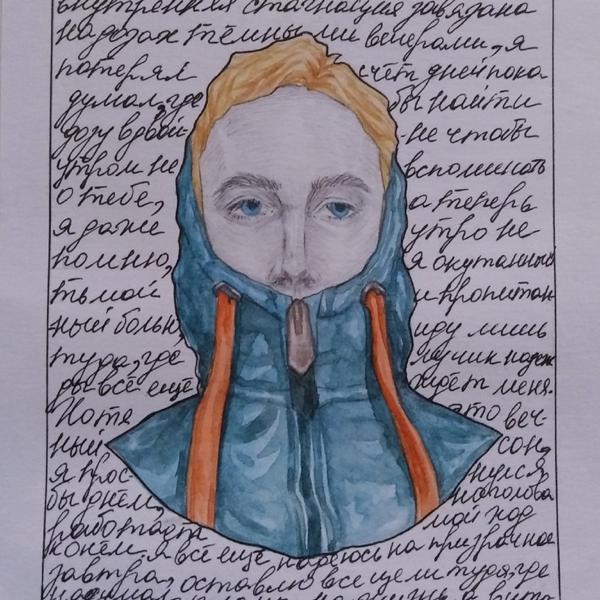 внутренняя стагнация завязана
на дозах тёмны ми вечерами, я
потерял счёт дней пока
думал, где бы найти
дозу вдвой- не чтобы
утром не вспоминать
о тебе, а теперь
я даже утро не
помню, я окутанный
тьмой и пропитан
ный болью, иду лишь
туда, где лучик надеж
ды всё ещё ждёт меня.
Хотя это веч-
ный сон,
я прос- нулся
бы днём, но голова
работает мой ход
конём, я всё ещё надеюсь на призрачное
завтра, оставлю все цели туда, где